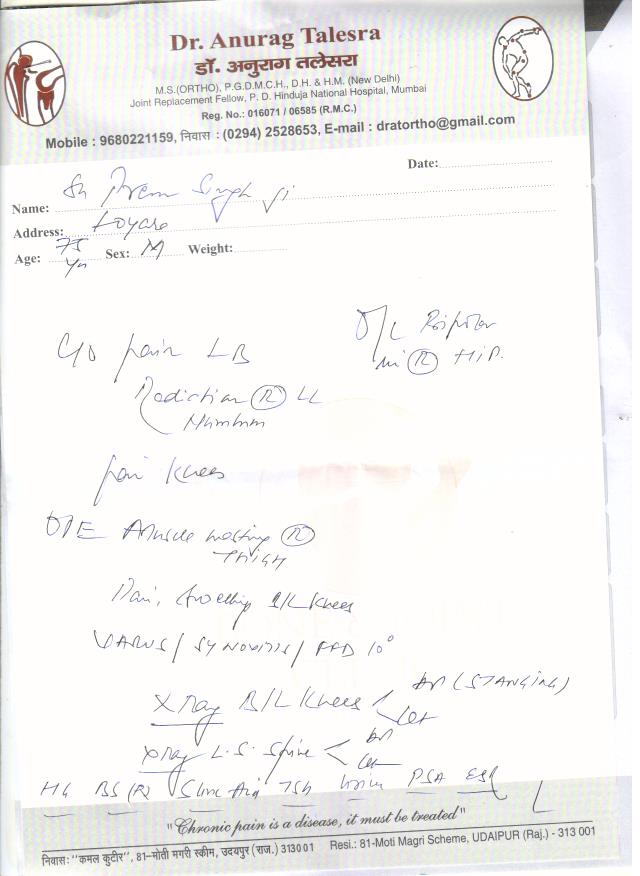 Dr. Anurag Talesra
डॉ. अनुराग तलेसरा
M.S.(ORTHO), P.G.D.M.C.H., D.H. & H.M. (New Delhi)
Joint Replacement Fellow, P. D. Hinduja National Hospital, Mumbai
Reg. No.: 016071 / 06585 (R.M.C.)
Mobile : 9680221159, निवास : (0294) 2528653, E-mail : dratortho@gmail.com
Date:
Name: Sh Prem Singh Ji
Address:
Age: 75 Yrs Sex: M Weight:
C/O pain LB
(R) HIP.
(R) LL
pain Knees
O/E Muscle wasting (R)
THIGH
Pain, Swelling B/L Knees
VARUS / SYNOVITIS / FFD 10°
X ray B/L Knees AP (STANDING)
Lat
X ray L.S. Spine AP
Lat
BS (R) TSH PSA ESR
"Chronic pain is a disease, it must be treated"
निवास: "कमल कुटीर", 81-मोती मगरी स्कीम, उदयपुर (राज.) 313001 Resi.: 81-Moti Magri Scheme, UDAIPUR (Raj.) - 313 001